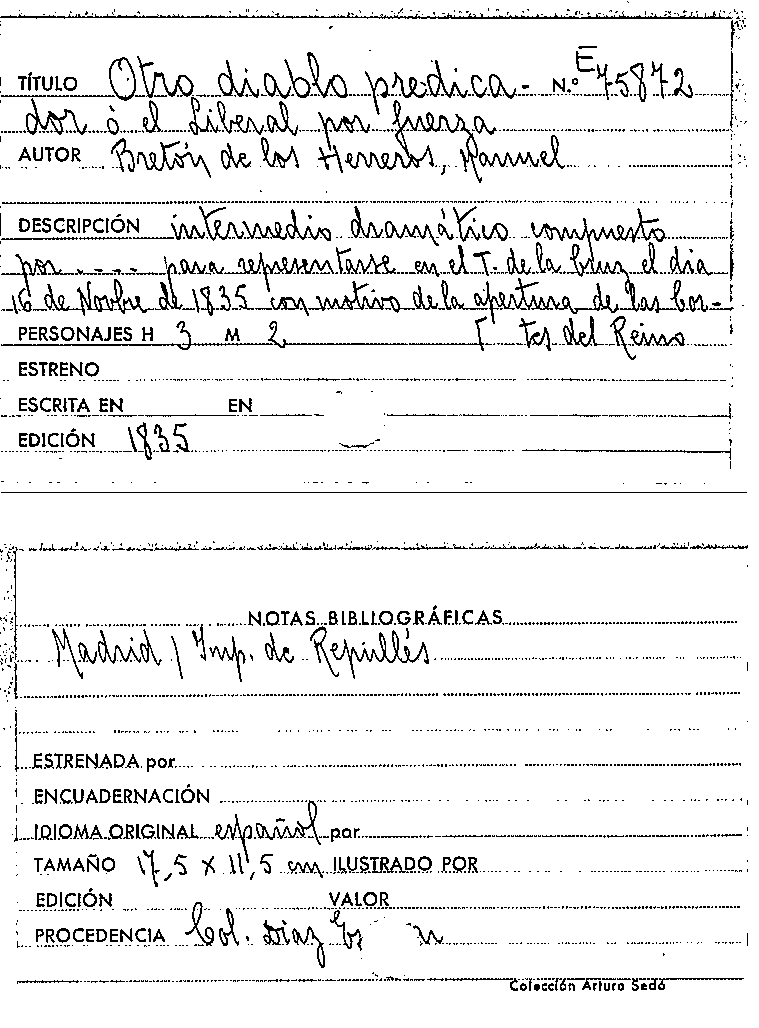 TÍTULO Otro diablo predica- N.º E 75872
dor ó el Liberal por fuerza
AUTOR Bretón de los Herreros, Manuel
DESCRIPCIÓN intermedio dramático compuesto
por .... para representarse en el T. de la Cruz el dia
16 de Novbre de 1835 con motivo de la apertura de las Cor-
PERSONAJES H 3 M 2 [ tes del Reino
ESTRENO
ESCRITA EN EN
EDICIÓN 1835
NOTAS BIBLIOGRÁFICAS
Madrid / Imp. de Repullés
ESTRENADA por
ENCUADERNACIÓN
IDIOMA ORIGINAL español por
TAMAÑO 17,5 x 11,5 cm ILUSTRADO POR
EDICIÓN VALOR
PROCEDENCIA Col. Diaz
Colección Arturo Sedó